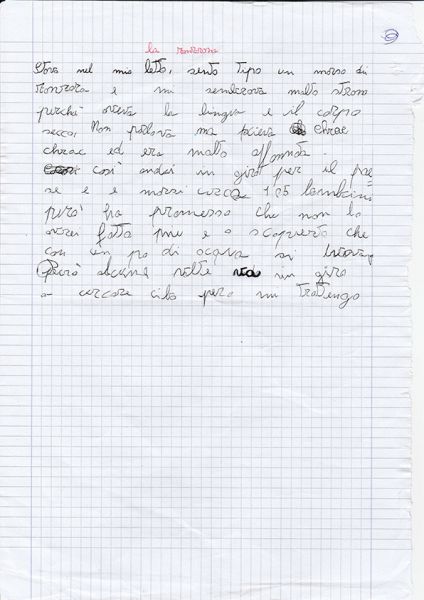 la
Ero nel mio letto, sento tipo un morso di
e mi sembrava molto strano
perché aveva la lingua e il corpo
secco. Non parlava ma faceva chrac
chrac ed era molto affamata.
così andai in giro per il pae
se e e morsi circa 105 bambini
però ha promesso che non lo
avrei fatto piu e o scoperto che
con un po di acqua si
Però alcune volte in giro
a cercare cibo pero mi trattengo